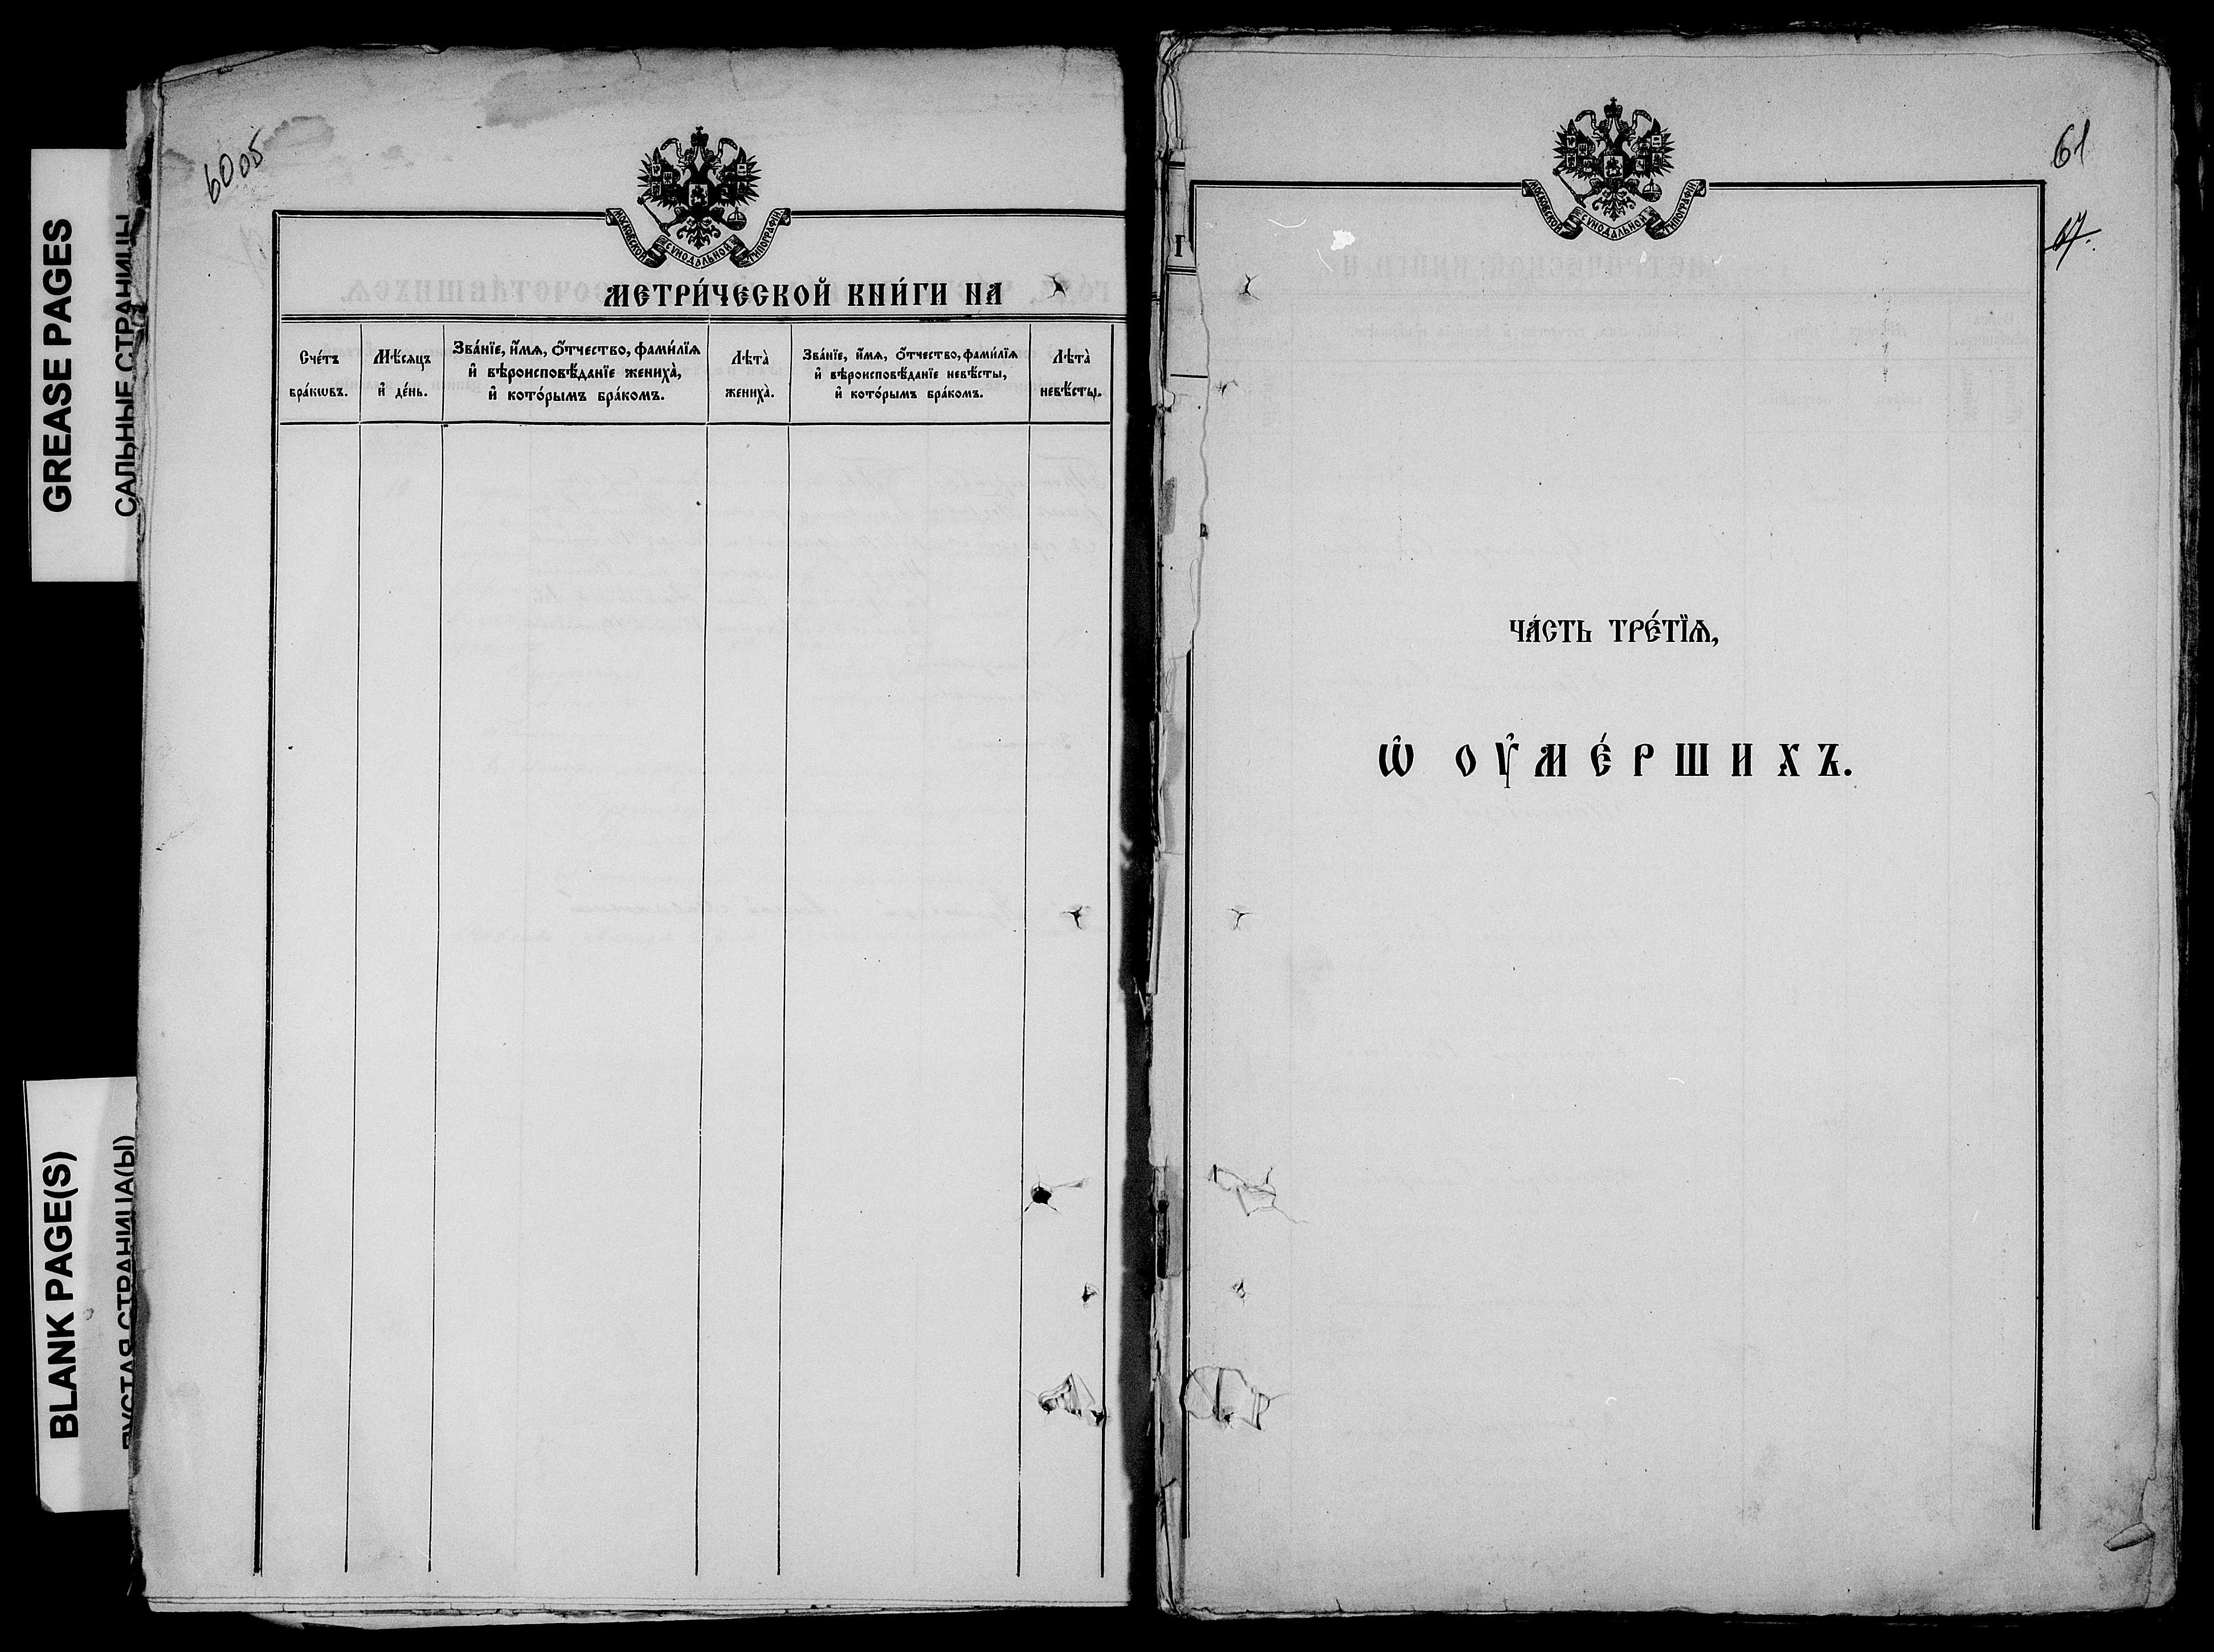 GREASE PAGES
САЛЬНЫЕ СТРАНИЦЫ
BLANK PAGE(S)
ПУСТАЯ СТРАНИЦА(Ы)
60об
МОСКОВСКОЙ СѴНОДАЛЬНОЙ ТИПОГРАФІИ
МЕТРИ́ЧЕСКОЙ КНИ́ГИ НА
Сче́тъ бра́кѡвъ.
Мѣ́сѧцъ и҆ де́нь.
Зва́нїе, и҆́мѧ, ѻ҆́тчество, фами́лїѧ
и҆ вѣроисповѣ́данїе жениха̀,
и҆ кото́рымъ бра́комъ.
Лѣта̀ жениха̀.
Зва́нїе, и҆́мѧ, ѻ҆́тчество, фами́лїѧ
и҆ вѣроисповѣ́данїе невѣ́сты,
и҆ кото́рымъ бра́комъ.
Лѣта̀ невѣ́сты.
61
МОСКОВСКОЙ СѴНОДАЛЬНОЙ ТИПОГРАФІИ
Г
ЧА́СТЬ ТРЕ́ТЇѦ,
Ѡ҆ ОУ҆МЕ́РШИХЪ.